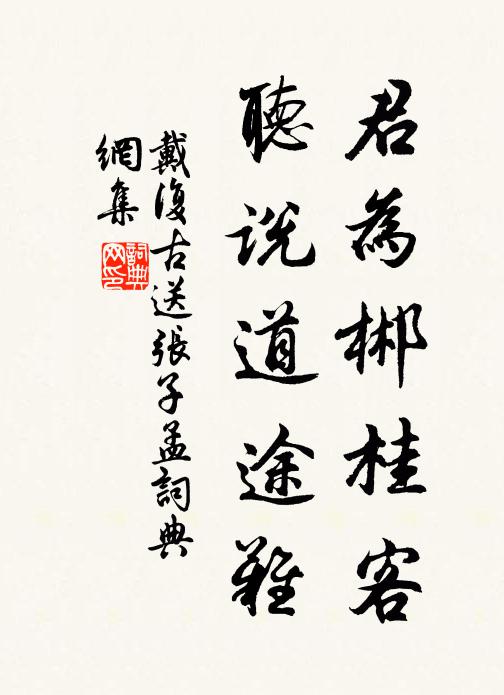 君為郴桂客
聽説道途難
戴復古送張子孟詞典
網集
詞典
网印